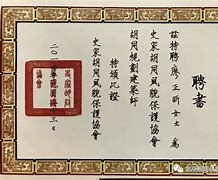 聘書
茲特聘廖正昕女士為
史家胡同風貌保護協會
胡同規劃建築師
特頒此證
史家胡同風貌保護協會
二〇一